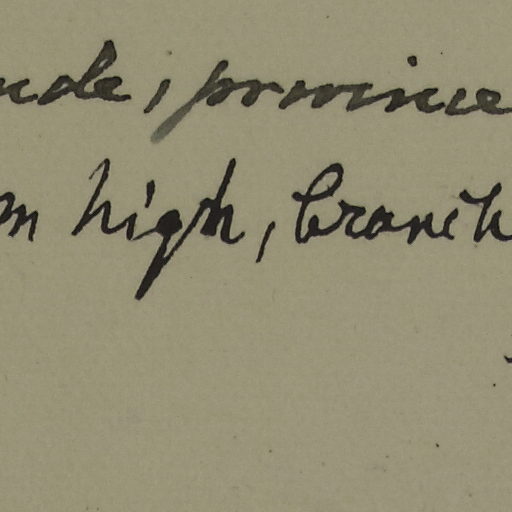 ude, province
m high, branch